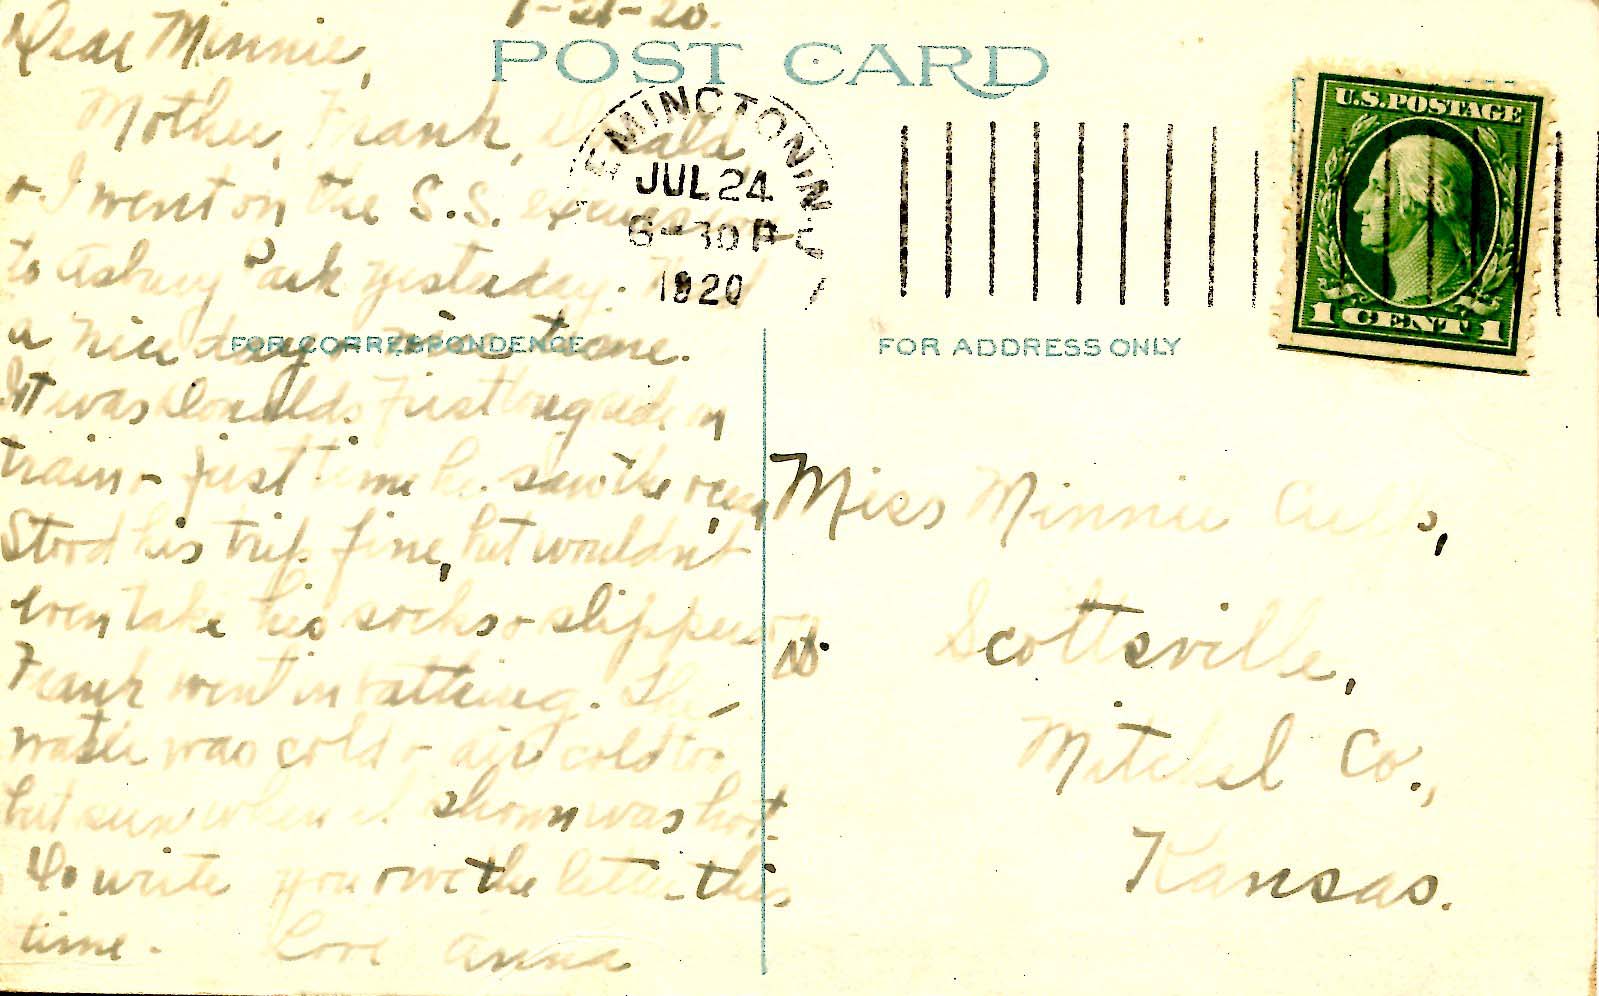 7-21-20.
Dear Minnie,
Mother, Frank, Donald
+ I went on the S.S. excursion
to Asbury Park yesterday. Had
a nice day + nice time.
It was Donalds first long ride on
train + first time he saw the ocean
Stood his trip fine, but wouldn't
even take his socks + slippers
Frank went in bathing. The
water was cold + air cold too
but sun when it shown was hot.
Do write you owe the letter this
time. Love Anna
POST CARD
FOR CORRESPONDENCE
FOR ADDRESS ONLY
EMINGTON N.J.
JUL 24
6-30 P
1920
U.S. POSTAGE
1 CENT 1
Miss Minnie
Scottsville,
Mitchel Co.,
Kansas.